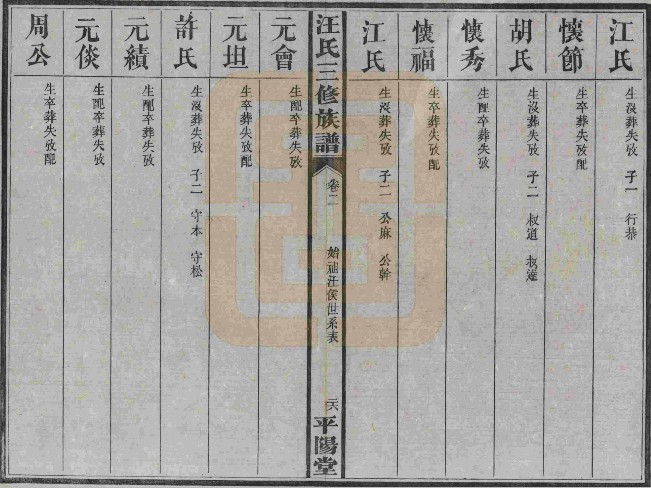 江氏
生沒葬失攷 子一 行恭
懷節
生卒葬失攷配
胡氏
生沒葬失攷 子二 叔道 叔達
懷秀
生配卒葬失攷
懷福
生卒葬失攷配
江氏
生沒葬失攷 子二 公麻 公幹
汪氏三修族譜
卷二
始祖汪侯世系表
二六
平陽堂
元會
生配卒葬失攷
元坦
生卒葬失攷配
許氏
生沒葬失攷 子二 守本 守松
元績
生配卒葬失攷
元倓
生配卒葬失攷
周公
生卒葬失攷配